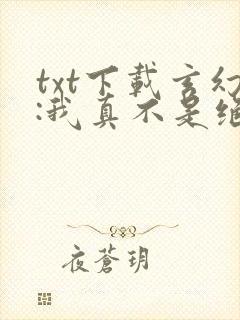 txt下載玄幻
:我真不是絕
夜蒼玥